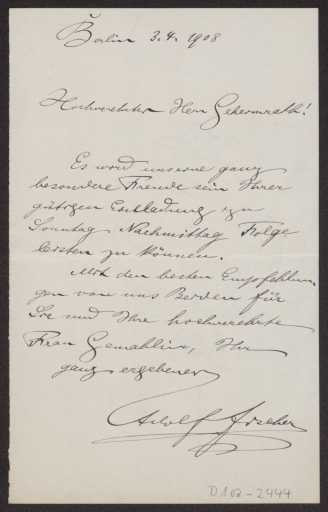 Berlin 3.4.1908
Hochverehrter Herr Geheimrath!
Es wird unserne ganz
besondere Freude sein Ihrer
gütigen Einladung zu
Sonntag Nachmittag Folge
leisten zu können.
Mit den besten Empfehlun-
gen von uns Beiden für
Sie und Ihre hochverehrte
Frau Gemahlin, Ihr
ganz ergebener
Adolf Fischer
D 102-2444